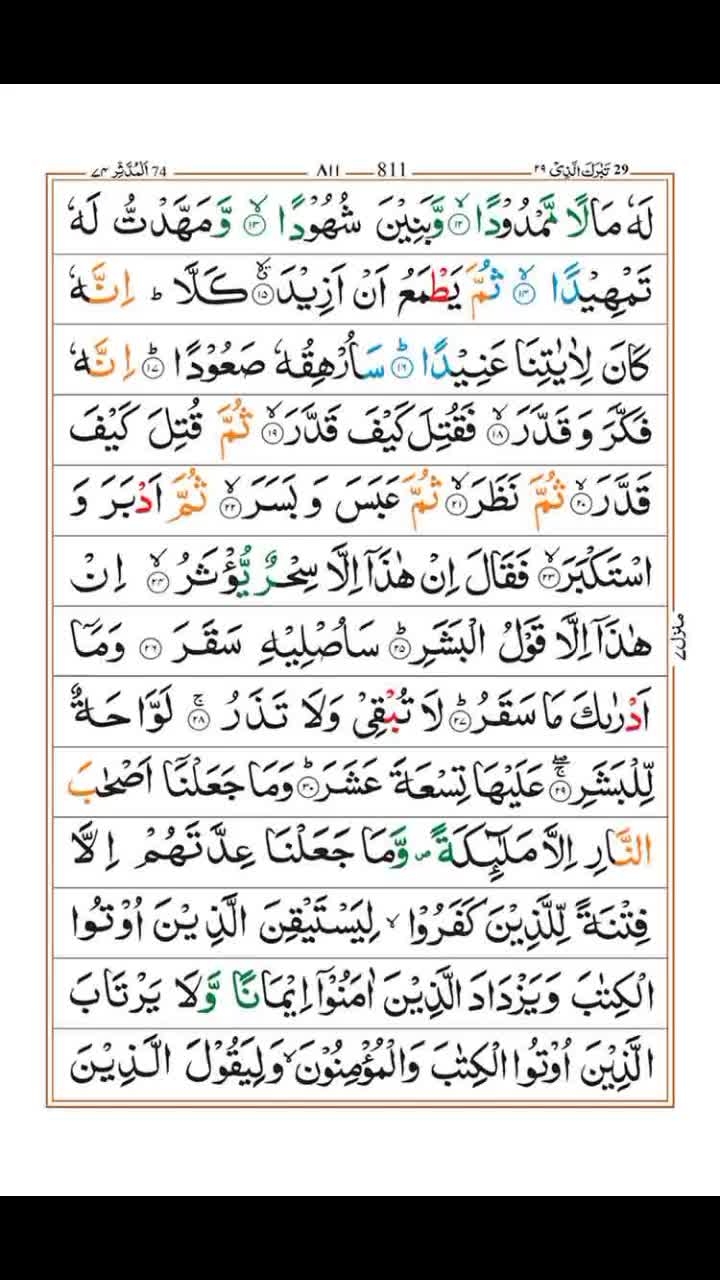 29 تَبٰرَكَ الَّذِیْ ٢٩ 811 ٨١١ 74 اَلْمُدَّثِّر ٧٤
لَهٗ مَالًا مَّمْدُوْدًا ۙ﴿۱۲﴾ وَّبَنِیْنَ شُهُوْدًا ۙ﴿۱۳﴾ وَّ مَهَّدْتُّ لَهٗ
تَمْهِیْدًا ۙ﴿۱۴﴾ ثُمَّ یَطْمَعُ اَنْ اَزِیْدَ ۙ﴿۱۵﴾ كَلَّا ؕ اِنَّهٗ
كَانَ لِاٰیٰتِنَا عَنِیْدًا ؕ﴿۱۶﴾ سَاُرْهِقُهٗ صَعُوْدًا ؕ﴿۱۷﴾ اِنَّهٗ
فَكَّرَ وَ قَدَّرَ ۙ﴿۱۸﴾ فَقُتِلَ كَیْفَ قَدَّرَ ۙ﴿۱۹﴾ ثُمَّ قُتِلَ كَیْفَ
قَدَّرَ ۙ﴿۲۰﴾ ثُمَّ نَظَرَ ۙ﴿۲۱﴾ ثُمَّ عَبَسَ وَ بَسَرَ ۙ﴿۲۲﴾ ثُمَّ اَدْبَرَ وَ
اسْتَكْبَرَ ۙ﴿۲۳﴾ فَقَالَ اِنْ هٰذَاۤ اِلَّا سِحْرٌ یُّؤْثَرُ ۙ﴿۲۴﴾ اِنْ
هٰذَاۤ اِلَّا قَوْلُ الْبَشَرِ ؕ﴿۲۵﴾ سَاُصْلِیْهِ سَقَرَ ﴿۲۶﴾ وَمَاۤ
اَدْرٰىكَ مَا سَقَرُ ؕ﴿۲۷﴾ لَا تُبْقِیْ وَلَا تَذَرُ ۚ﴿۲۸﴾ لَوَّاحَةٌ
لِّلْبَشَرِ ۚۖ﴿۲۹﴾ عَلَیْهَا تِسْعَةَ عَشَرَ ؕ﴿۳۰﴾ وَمَا جَعَلْنَاۤ اَصْحٰبَ
النَّارِ اِلَّا مَلٰٓىِٕكَةً ۪ وَّمَا جَعَلْنَا عِدَّتَهُمْ اِلَّا
فِتْنَةً لِّلَّذِیْنَ كَفَرُوْا ۙ لِیَسْتَیْقِنَ الَّذِیْنَ اُوْتُوا
الْكِتٰبَ وَیَزْدَادَ الَّذِیْنَ اٰمَنُوْۤا اِیْمَانًا وَّلَا یَرْتَابَ
الَّذِیْنَ اُوْتُوا الْكِتٰبَ وَالْمُؤْمِنُوْنَ ۙ وَلِیَقُوْلَ الَّذِیْنَ
منزل ٧